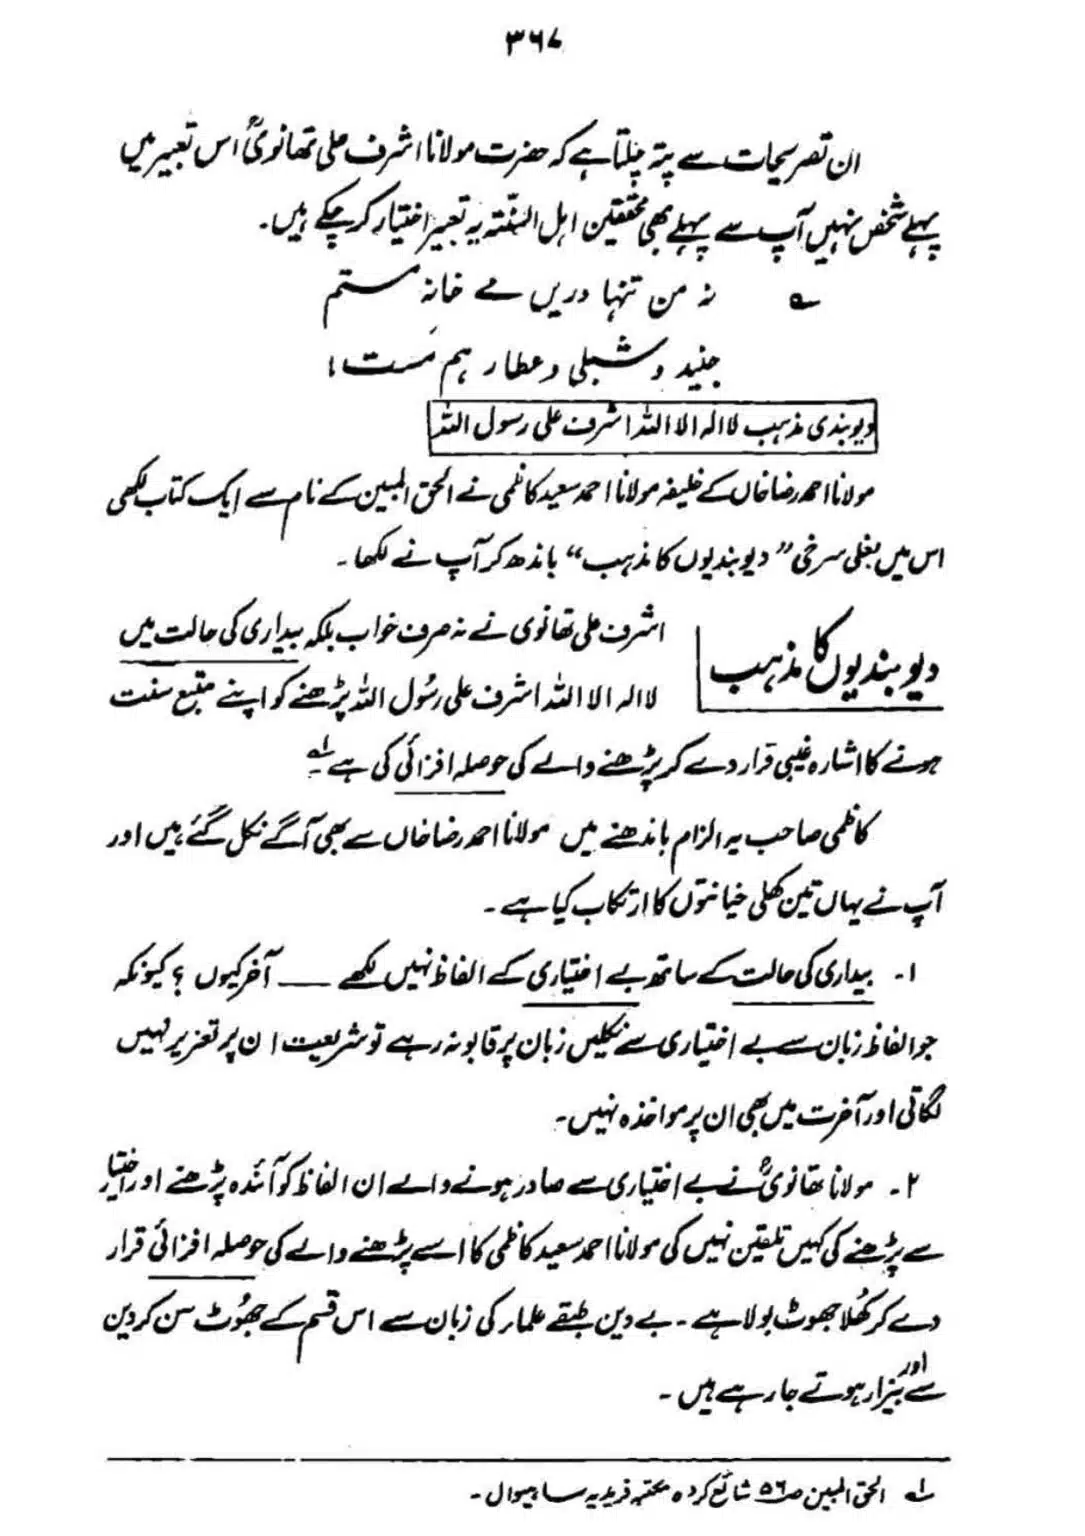 ۳۶۷
ان تصریحات سے پتہ چلتا ہے کہ حضرت مولانا اشرف علی تھانویؒ اس تعبیر میں
پہلے شخص نہیں آپ سے پہلے بھی محققین اہل السنّتہ یہ تعبیر اختیار کر چکے ہیں۔
؎ نہ من تنہا دریں مے خانہ مستم
جنید و شبلی و عطار ہم مست!
دیوبندی مذہب لا الہ الا اللہ اشرف علی رسول اللہ
مولانا احمد رضا خاں کے خلیفہ مولانا احمد سعید کاظمی نے الحق المبین کے نام سے ایک کتاب لکھی
اس میں بغلی سرخی ”دیوبندیوں کا مذہب“ باندھ کر آپ نے لکھا۔
دیوبندیوں کا مذہب
اشرف علی تھانوی نے نہ صرف خواب بلکہ بیداری کی حالت میں
لا الہ الا اللہ اشرف علی رسُول اللہ پڑھنے کو اپنے متبع سنت
ہونے کا اشارہ غیبی قرار دے کر پڑھنے والے کی حوصلہ افزائی کی ہے ؎۱
کاظمی صاحب یہ الزام باندھنے میں مولانا احمد رضا خاں سے بھی آگے نکل گئے ہیں اور
آپ نے یہاں تین کھلی خیانتوں کا ارتکاب کیا ہے۔
۱۔ بیداری کی حالت کے ساتھ بے اختیاری کے الفاظ نہیں لکھے ـــــ آخر کیوں ؟ کیونکہ
جو الفاظ زبان سے بے اختیاری سے نکلیں زبان پر قابو نہ رہے تو شریعت ان پر تعزیر نہیں
لگاتی اور آخرت میں بھی ان پر مواخذہ نہیں۔
۲۔ مولانا تھانویؒ نے بے اختیاری سے صادر ہونے والے ان الفاظ کو آئندہ پڑھنے اور اختیار
سے پڑھنے کی کہیں تلقین نہیں کی مولانا احمد سعید کاظمی کا اسے پڑھنے والے کی حوصلہ افزائی قرار
دے کر کھُلا جھوٹ بولا ہے۔ بے دین طبقے علمار کی زبان سے اس قسم کے جھُوٹ سن کر دین
سے اور بیزار ہوتے جا رہے ہیں۔
؎۱ الحق المبین ص۵۶ شائع کردہ مکتبہ فریدیہ ساہیوال۔